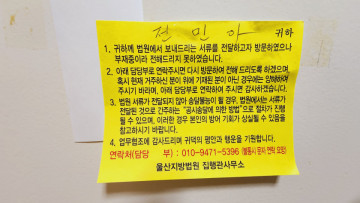 전 민 아 귀하
1. 귀하께 법원에서 보내드리는 서류를 전달하고자 방문하였으나
부재중이라 전해드리지 못하였습니다.
2. 아래 담당부로 연락주시면 다시 방문하여 전해 드리도록 하겠으며,
혹시 현재 거주하신 분이 위에 기재된 분이 아닌 경우에는 양해하여
주시기 바라며, 아래 담당부로 연락하여 주시면 감사하겠습니다.
3. 법원 서류가 전달되지 않아 송달불능이 될 경우, 법원에서는 서류가
전달된 것으로 간주하는 "공시송달에 의한 방법"으로 절차가 진행
될 수 있으며, 이러한 경우 본인의 방어 기회가 상실될 수 있음을
참고하시기 바랍니다.
4. 업무협조에 감사드리며 귀댁의 평안과 행운을 기원합니다.
연락처(담당 부) : 010-9471-5396 (불통시 문자 연락 요망)
울산지방법원 집행관사무소